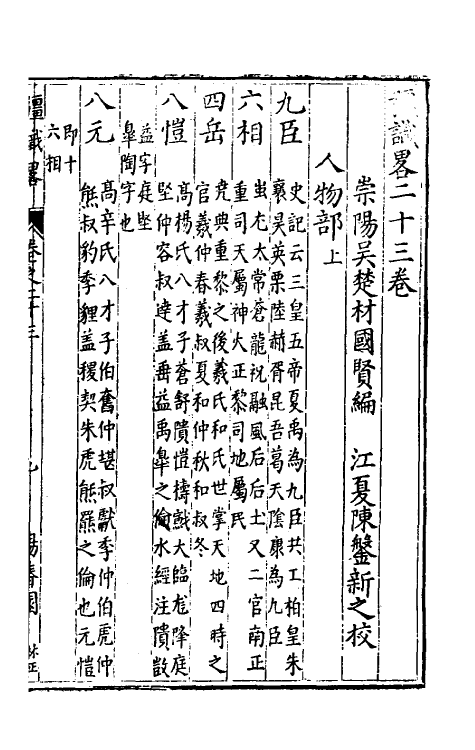 彊識畧二十三卷
崇陽吳楚材國賢編　江夏陳鑒新之校
人物部上
九臣　史記云三皇五帝夏禹為九臣共工柏皇朱
襄昊英栗陸赫胥昆吾葛天陰康為九臣
六相　蚩尤太常蒼龍祝融風后后土又二官南正
重司天屬神火正黎司地屬民
四岳　堯典重黎之後羲氏和氏世掌天地四時之
官羲仲春羲叔夏和仲秋和叔冬
八愷　高楊氏八才子蒼舒隤愷擣戭大臨尨降庭
堅仲容叔達盖垂益禹皋之倫水經注隤敳
益字庭堅
皋陶字也
八元　髙辛氏八才子伯奮仲堪叔獻季仲伯虎仲
熊叔豹季貍盖稷契朱虎熊羆之倫也元愷
即十
六相
彊識畧　卷之二十三